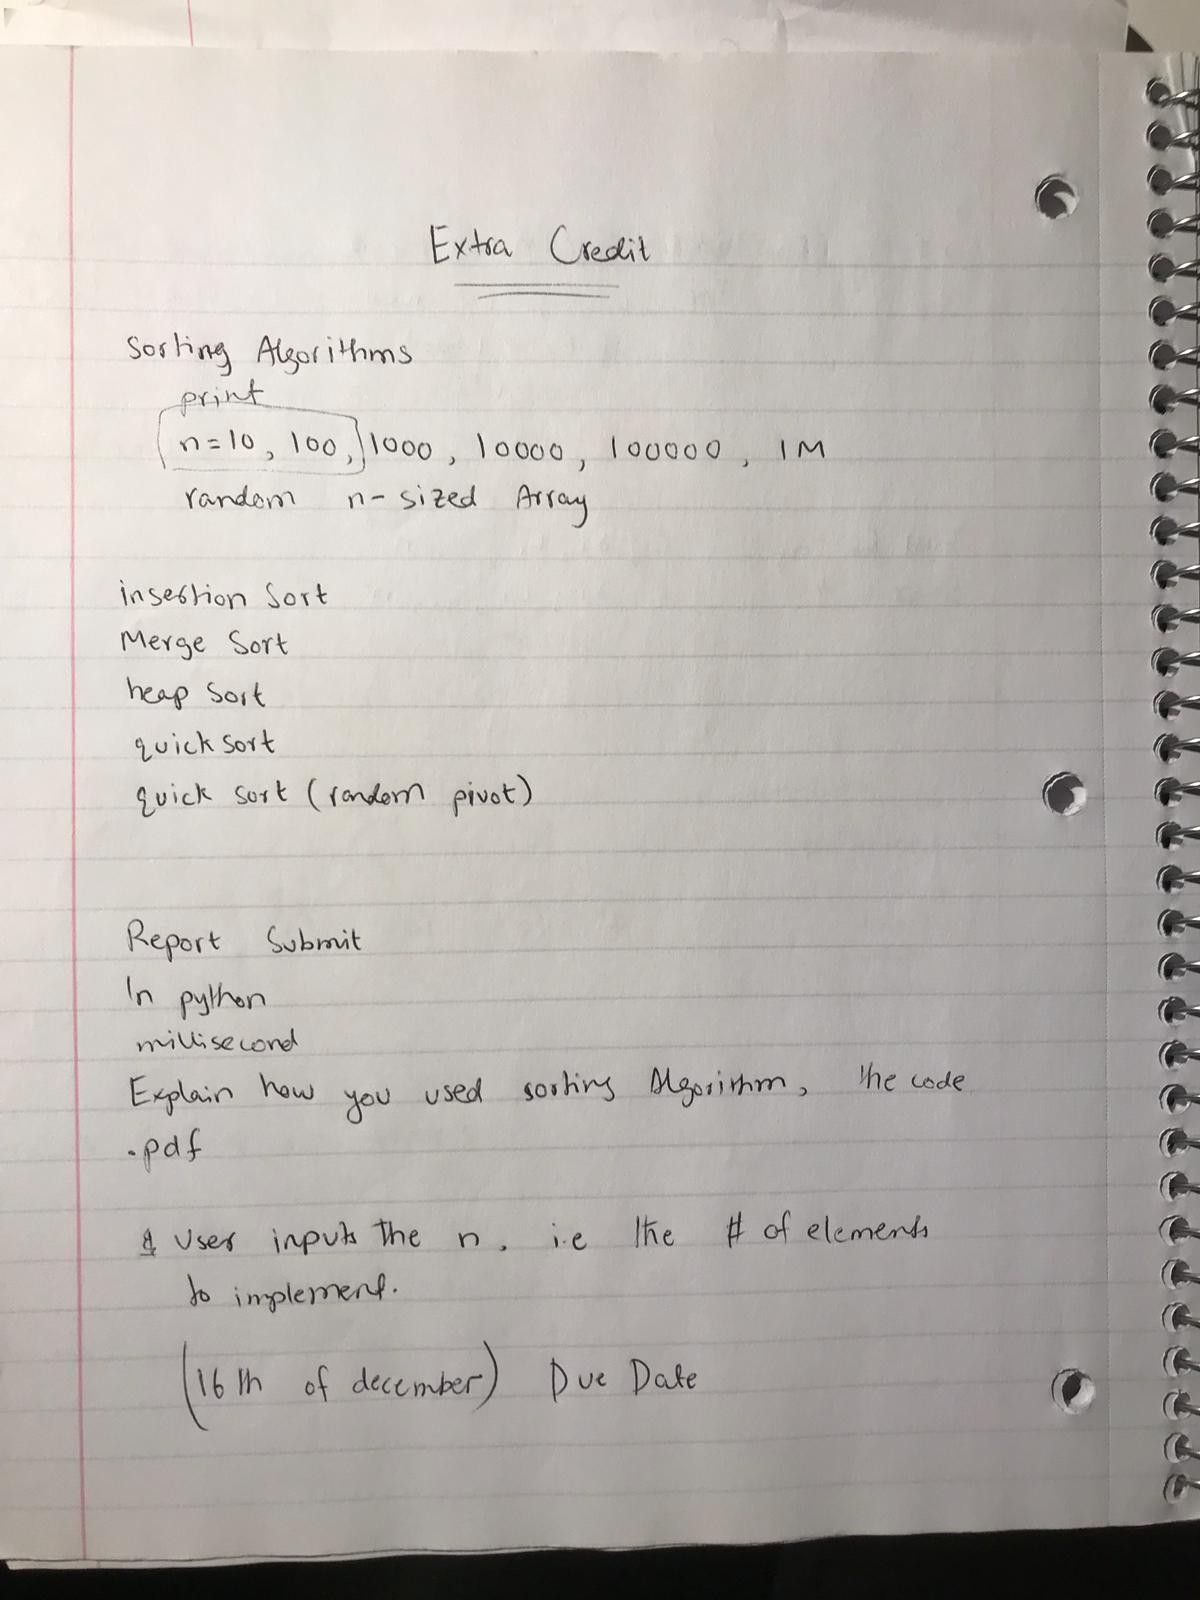 Extra Credit
Sorting Algorithms
print
n=10, 100, 1000, 10000, 100000, 1M
random n-sized Array
insertion Sort
Merge Sort
heap Sort
quick sort
quick sort (random pivot)
Report Submit
In python
millisecond
Explain how you used sorting Algorithm, the code
.pdf
User inputs the n. i.e the # of elements
to implement.
(16th of december) Due Date